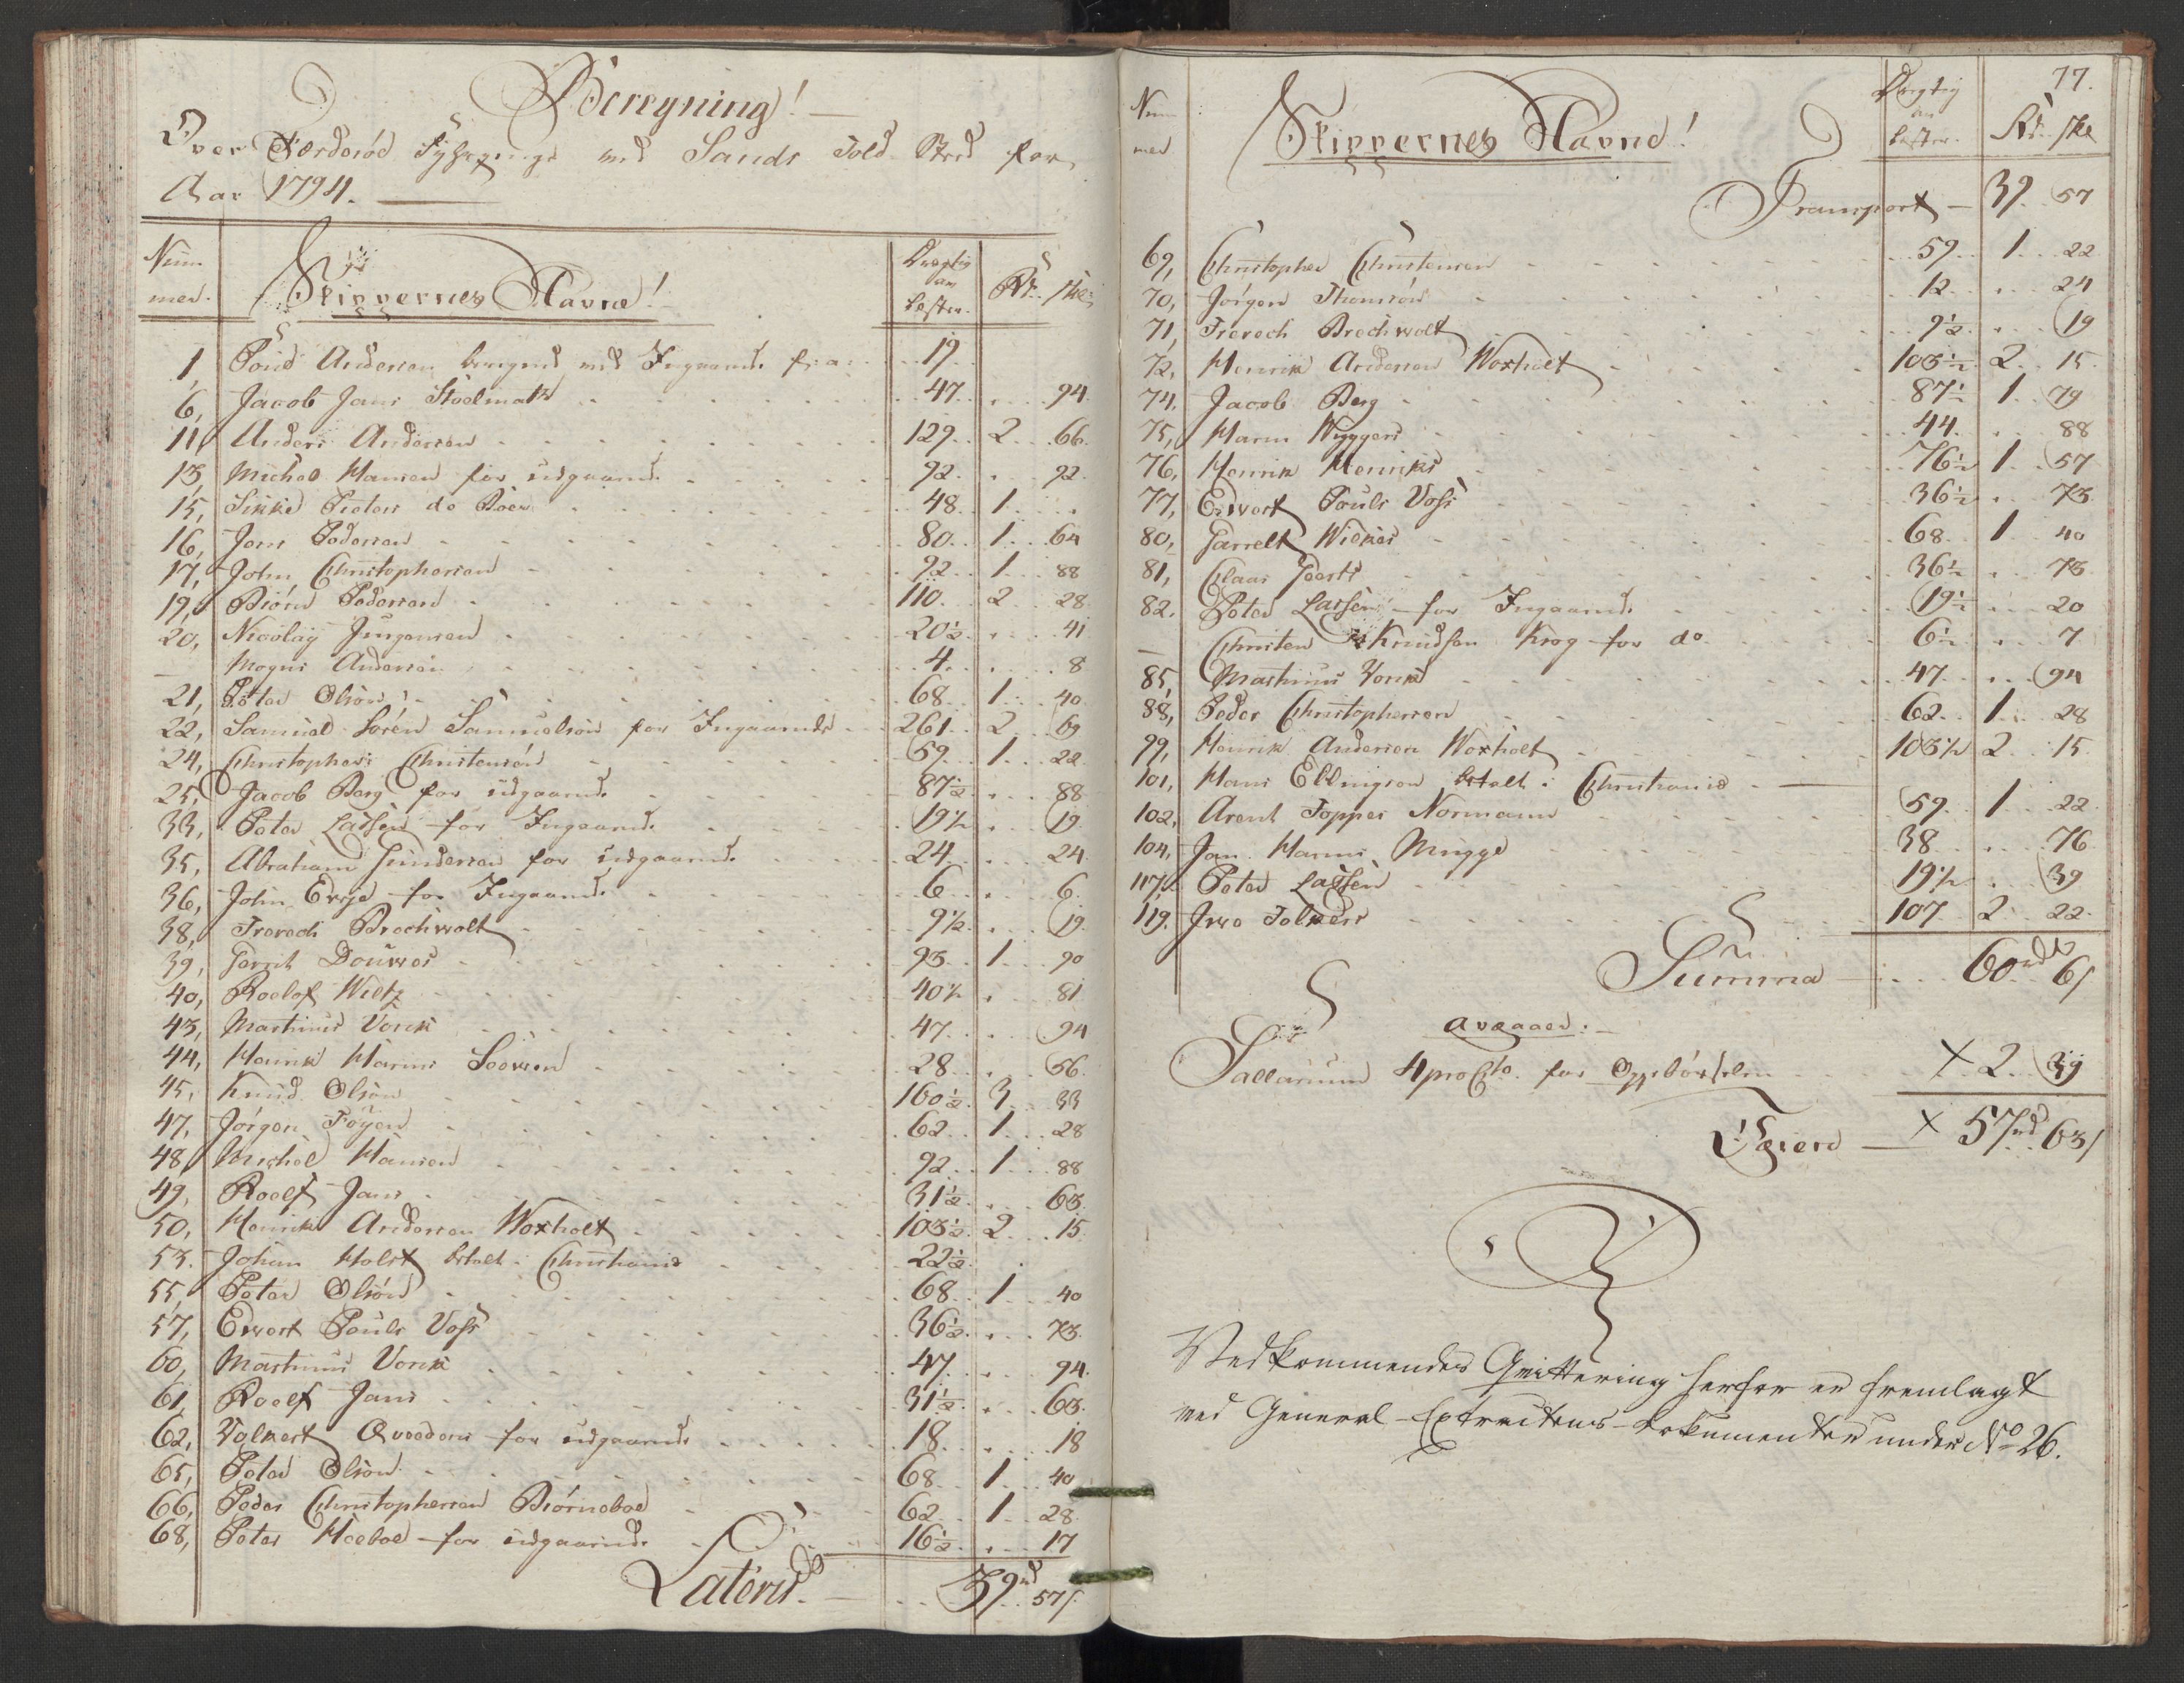 Beregning!
Over Færderöe Fyhrpenge ved Sands Told Sted for
Aar 1794.
Num mer. Skippernes Navne! Drægtig an Læster. Rd. skl.
1, Poul Andersen beregnet ved Indgaaende f: a: 19
6, Jacob Jans Stoelmak 47 . 94
11, Anders Andersen 129 2 66
13, Michel Hansen for udgaaend. 92 . 92
15, Sikke Pieters de Boer 48 1 .
16, Jens Pedersen 80 1 64
17, John Christophersen 92 1 88
19, Biörn Pedersen 110 2 28
20, Nicolay Jürgensen 20½ . 41
— Mogns Andersen 4 . 8
21, Peter Olsön 68 1 40
22, Samuel Sören Samuelsön for Ingaaende 261 2 69
24, Christopher Christensen 59 1 22
25, Jacob Berg for udgaaend. 87½ . 88
33, Peter Lassen for Ingaaend. 19½ . 19
35, Abraham Gundersen for udgaaend. 24 . 24
36, John Evje for Ingaaend. 6 . 6
38, Frerech Brechwolt 9½ . 19
39, Gerrit Douwes 93 1 90
40, Roelof Wiltz 40½ . 81
43, Martinus Vonk 47 . 94
44, Henrik Harms Seewen 28 . 56
45, Knud Olsön 160½ 3 33
47, Jörgen Föyen 62 1 28
48, Michel Hansen 92 1 88
49, Roelf Jans 31½ . 63
50, Henrik Andersen Woxholt 103½ 2 15
53. Johan Holst betalt i Christiania 22½ .
55, Peter Olsön 68 1 40
57, Ewert Pouls Voss 36½ . 73
60, Martinus Vonk 47 . 94
61, Roelf Jans 31½ . 63
62, Volkert Qveeders for udgaaend. 18 . 18
65, Peter Olsön 68 1 40
66, Peder Christophersen Biörneboe 62 1 28
68, Peter Hoeboe for udgaaend. 16½ . 17
Lateris 39rd 57s
77.
Num mer Skippernes Navne! Drægtig an Læster. Rd. skl
Transport 39 57
69, Christopher Christensen 59 1 22
70, Jörgen Thomsön 12 . 24
71, Frerech Brechwolt 9½ . 19
72, Henrik Andersen Woxholt 103½ 2 15
74, Jacob Berg 87½ 1 79
75, Harm Wyggers 44 . 88
76, Henrik Henriks 76½ 1 57
77, Ewert Pouls Voss 36½ . 73
80, Garrelt Wiekes 68 1 40
81, Claas Geerts 36½ . 73
82. Peter Lassen for Ingaaend. 19½ . 20
— Christen Knudsen Krog for do 6½ . 7
85, Martinus Vonk 47 . 94
88, Peder Christophersen 62 1 28
99, Henrik Andersen Woxholt 103½ 2 15
101, Hans Ellingsen betalt i Christiania —
102, Arent Toppes Normann 59 1 22
104, Jan Harms Mügge 38 . 76
117, Peter Lassen 19½ . 39
119. Jwo Folkers 107 2 22
Summa 60rd 6s
avgaaer:
Sallarium 4 pro Cto. for Oppebörselen × 2 39
Igien × 57rd 63s
Vedkommendes Qvittering herfor er fremlagt
ved General-Extractens-Dokumenter under No 26.